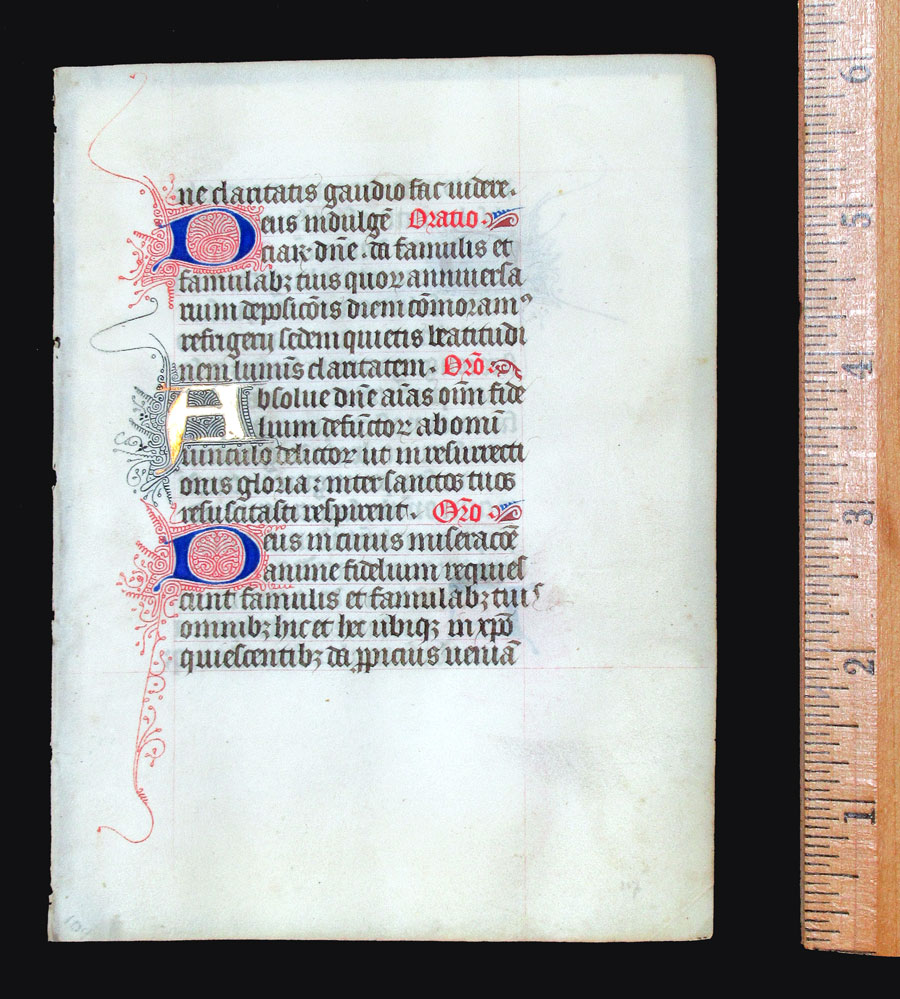 ne claritatis gaudio fac uidere.
Deus indulgē Oratio.
ciaꝝ dn̄e. da famulis et
famulabꝫ tuis quoꝝ anniuersa
rium deposicōis diem cōmoramꝰ
refrigerij sedem quietis beatitudi
nem lumīs claritatem. Orō
Absolue dn̄e aīas oīm fide
lium defūctoꝝ ab omī
uinculo delictoꝝ ut in resurrecti
onis gloria: inter sanctos tuos
resuscitasti respirent. Orō
Deus in cuius miseracōē
anime fidelium requies
cunt famulis et famulabꝫ tuis
omnibꝫ hic et hec ubiqꝫ in xp̄o
quiescentibꝫ da ꝓpicius ueniā
107
6
5
4
3
2
1